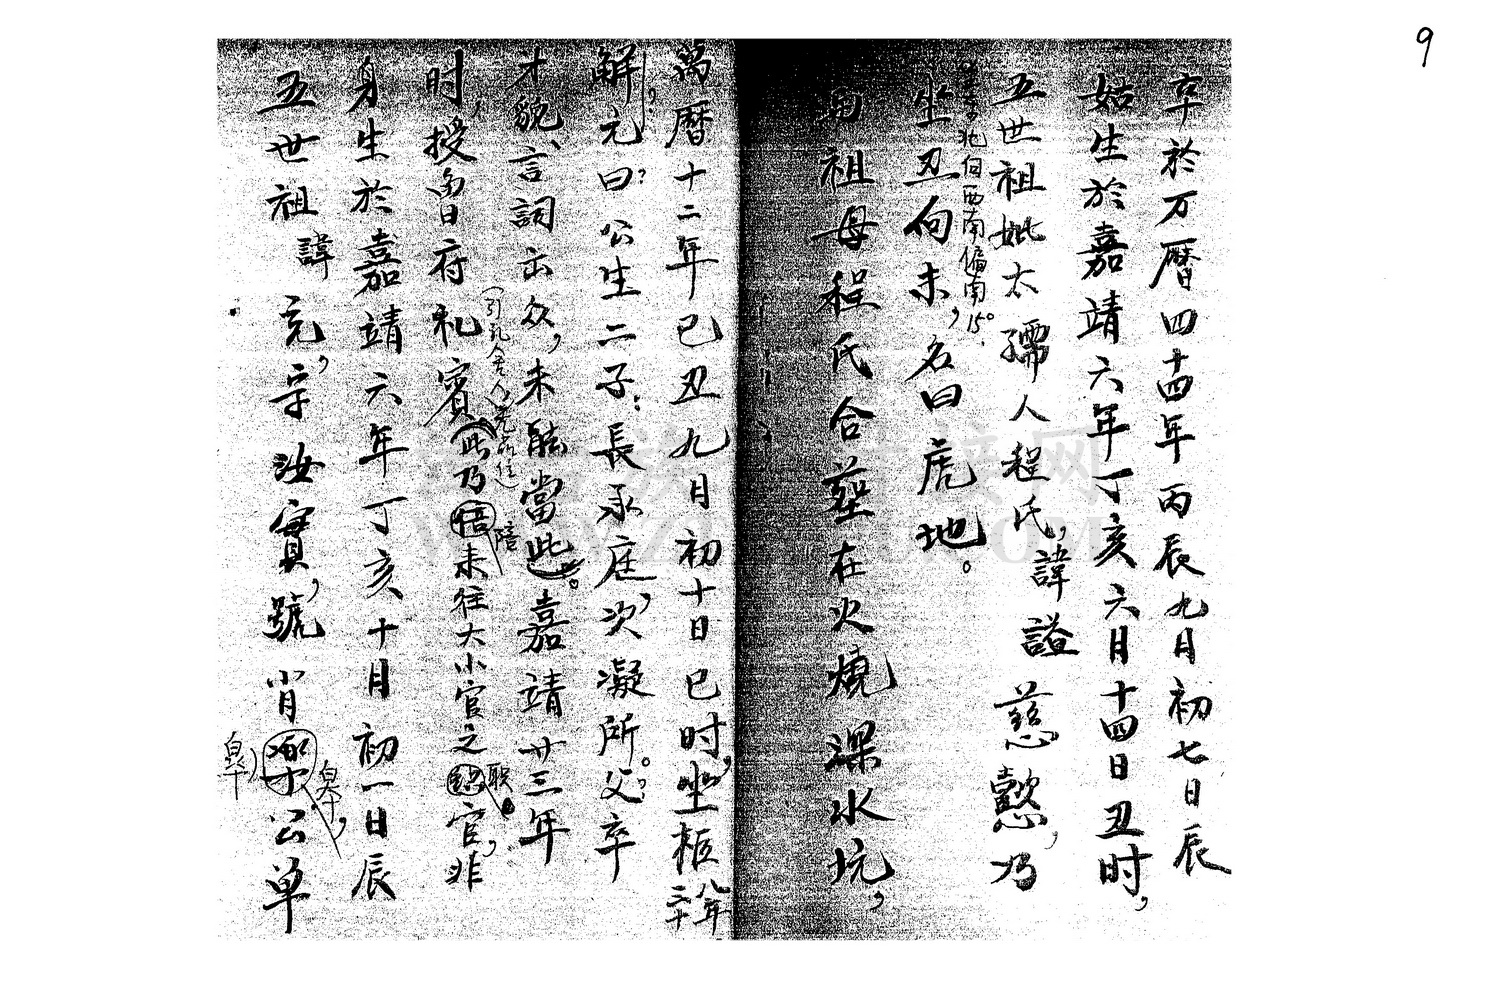 9
五世祖諱克，字汝實，號肖公単
身生於嘉靖六年丁亥十月初一日辰
时，授魯府礼賓（此乃陪来往大小官之职官，非
才貌、言詞出众，未能當此）。嘉靖廿三年
解元曰：公生二子：長承庭，次凝所。父卒
萬曆十二年已丑九月初十日巳时，坐柩
二十八年
與祖母程氏合塟在火燒深水坑，
坐丑向未，名曰虎地。
北向西南偏南15°
五世祖妣太孺人程氏，諱謚慈懿，乃
姑生於嘉靖六年丁亥六月十四日丑时，
卒於万曆四十四年丙辰九月初七日辰